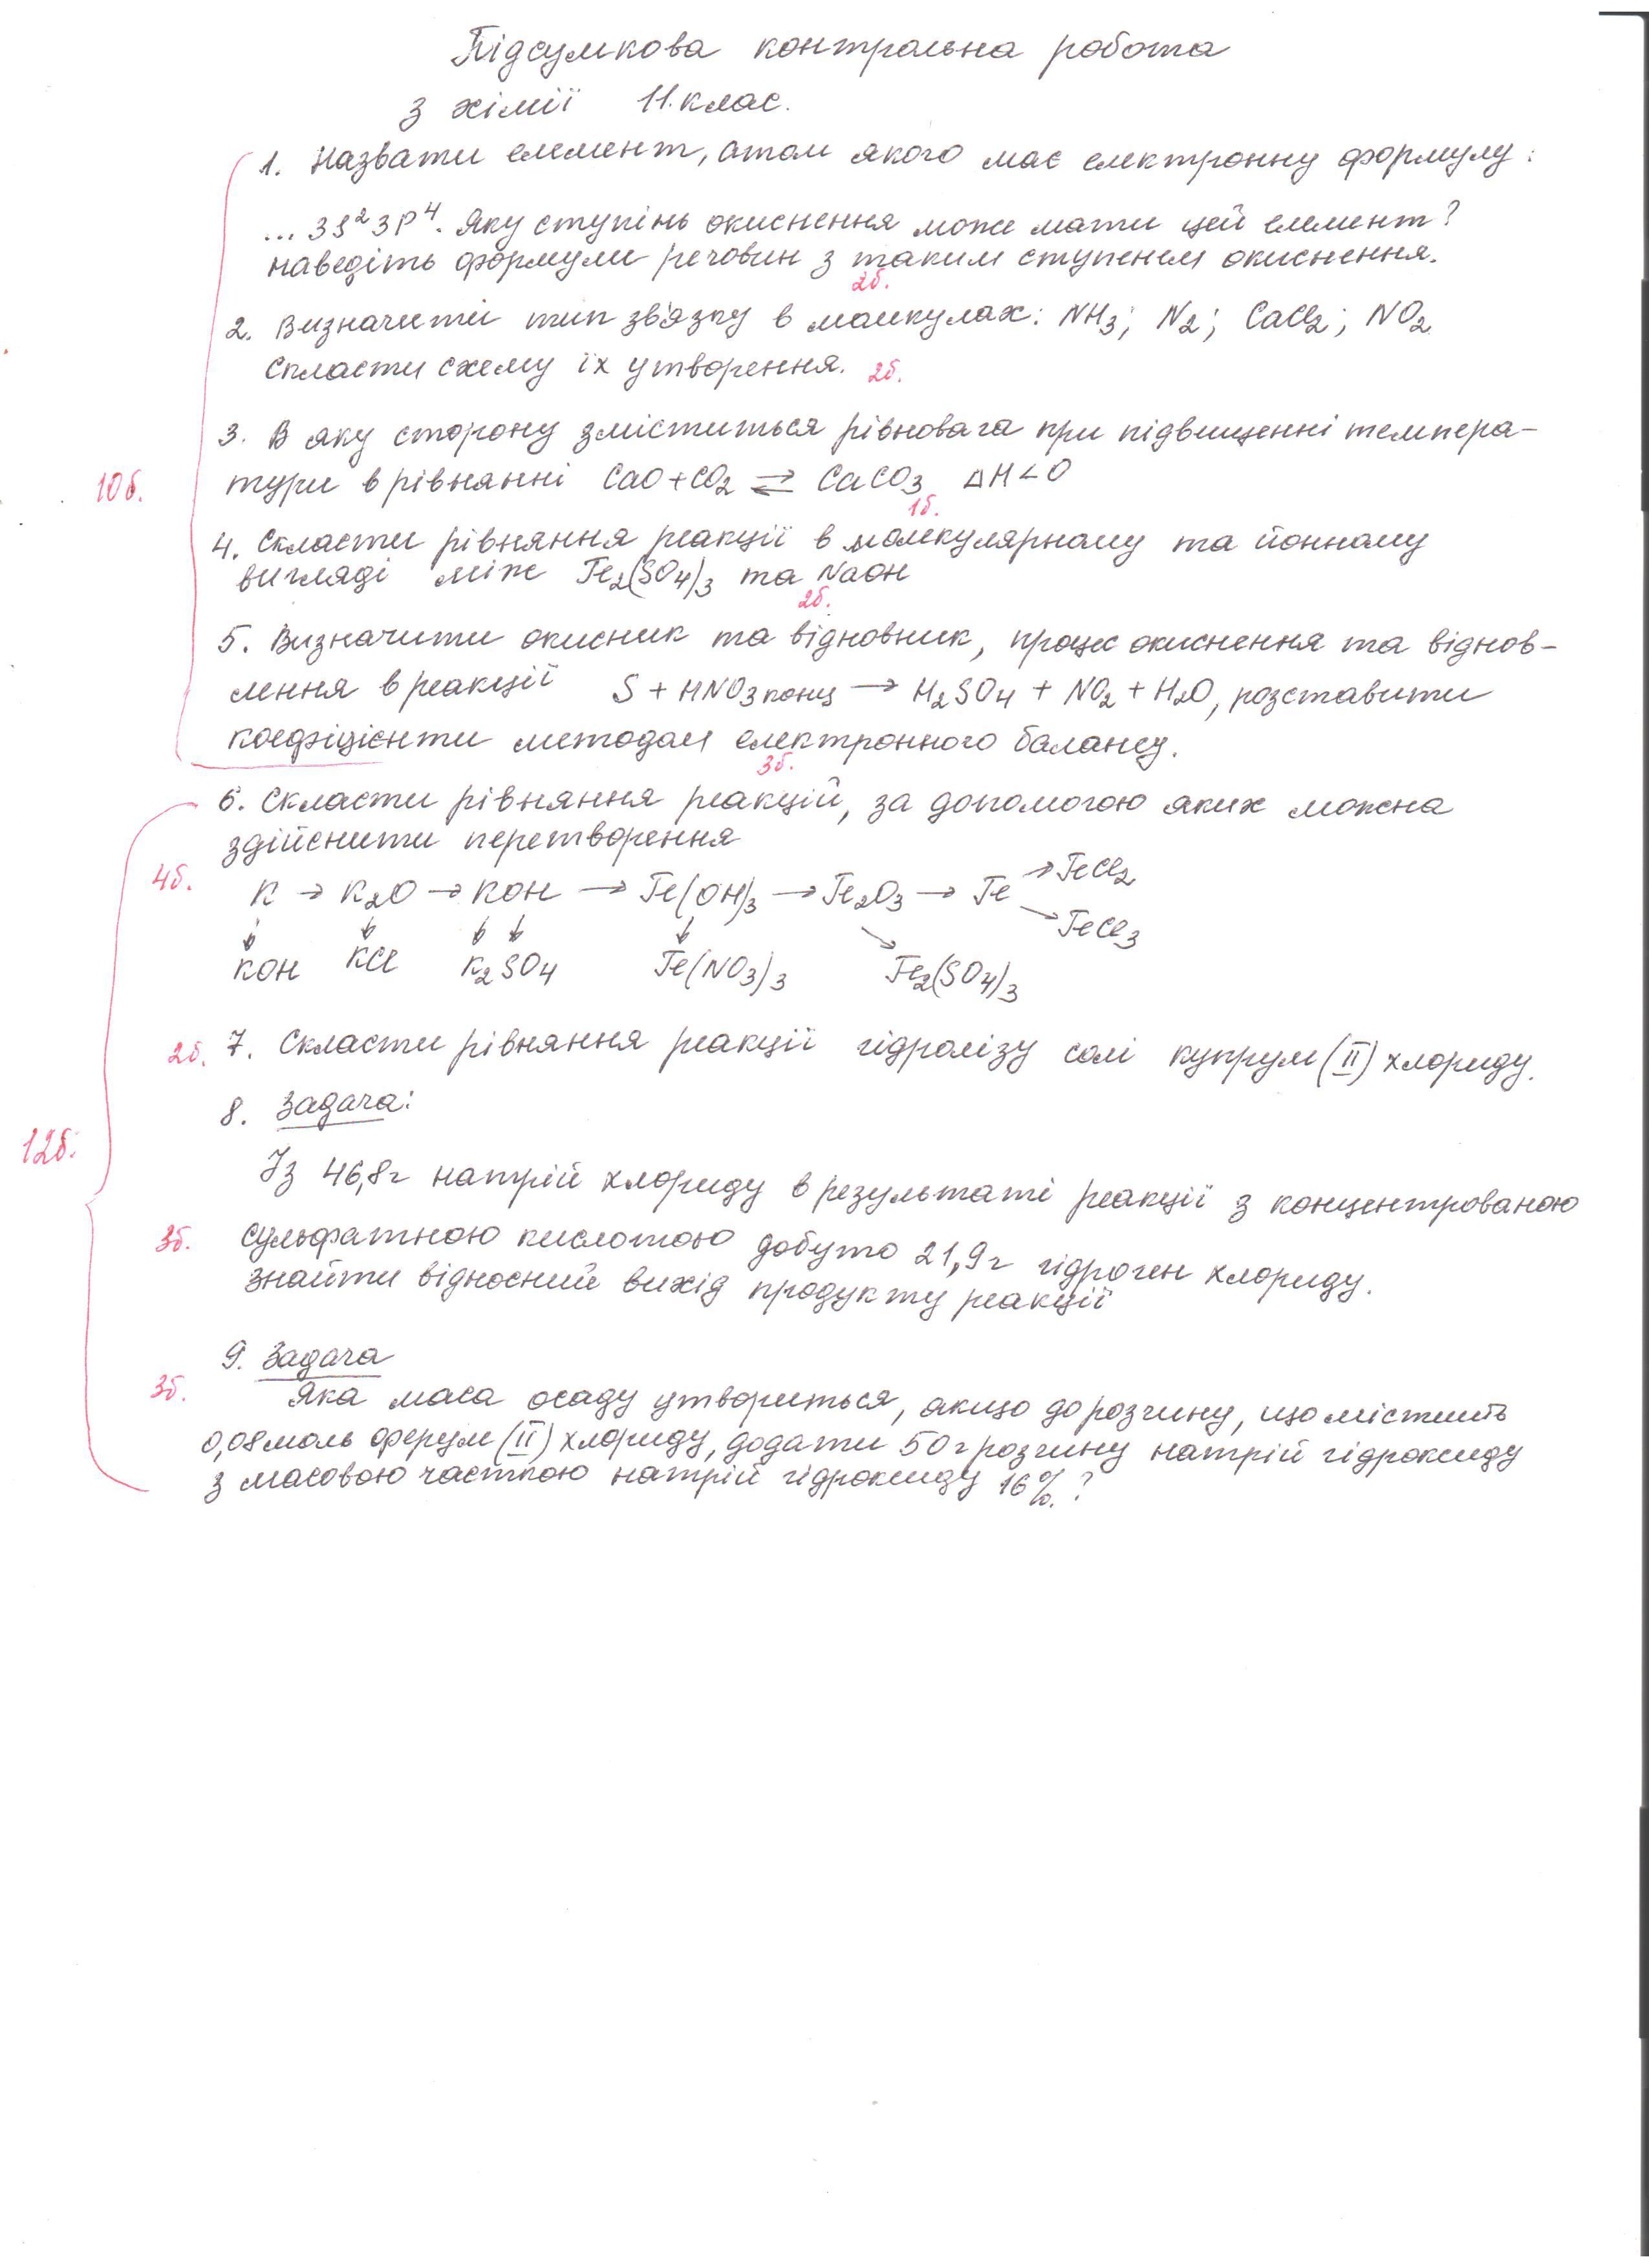 Підсумкова контрольна робота
з хімії 11 клас.
1. Назвати елемент, атом якого має електронну формулу:
... 3S²3P⁴. Яку ступінь окиснення може мати цей елемент?
наведіть формули речовин з таким ступенем окиснення.
2б.
2. Визначити тип зв'язку в молекулах: NH₃; N₂; CaCl₂; NO₂
Скласти схему їх утворення. 2б.
3. В яку сторону зміститься рівновага при підвищенні темпера-
10б.
тури в рівнянні CaO+CO₂ ⇄ CaCO₃ ΔH<0
1б.
4. Скласти рівняння реакції в молекулярному та йонному
вигляді між Fe₂(SO₄)₃ та NaOH
2б.
5. Визначити окисник та відновник, процес окиснення та віднов-
лення в реакції S + HNO₃ конц → H₂SO₄ + NO₂ + H₂O, розставити
коефіцієнти методом електронного балансу.
3б.
6. Скласти рівняння реакцій, за допомогою яких можна
здійснити перетворення
4б.
K → K₂O → KOH → Fe(OH)₃ → Fe₂O₃ → Fe → FeCl₂
→ FeCl₃
↓ ↓ ↓ ↓ ↓ ↘
KOH KCl K₂SO₄ Fe(NO₃)₃ Fe₂(SO₄)₃
2б. 7. Скласти рівняння реакції гідролізу солі купрум (II) хлориду.
8. Задача:
12б.
Із 46,8г натрій хлориду в результаті реакції з концентрованою
3б. сульфатною кислотою добуто 21,9г гідроген хлориду.
знайти відносний вихід продукту реакції
9. Задача
3б. Яка маса осаду утвориться, якщо до розчину, що містить
0,08моль ферум (II) хлориду, додати 50г розчину натрій гідроксиду
з масовою часткою натрій гідроксиду 16%.?